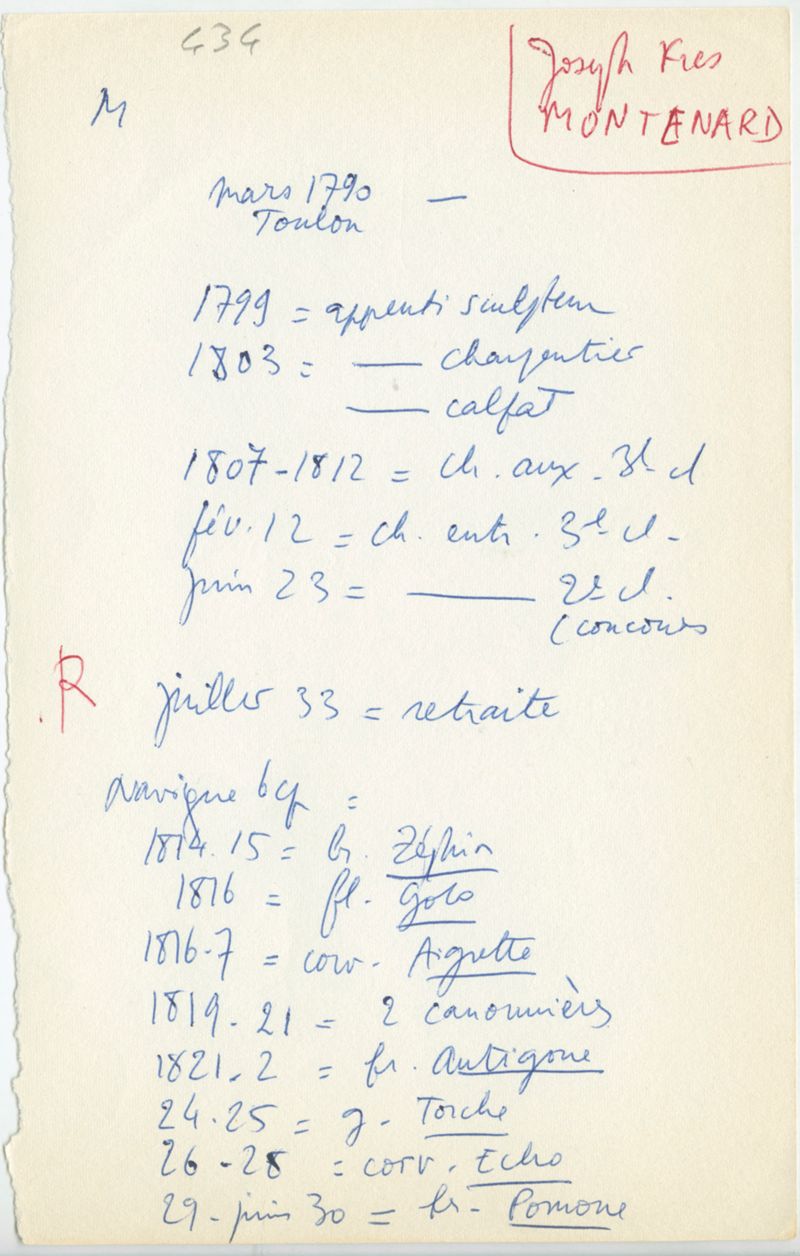 434
Joseph Frçs
MONTENARD
M
mars 1790 —
Toulon
1799 = apprenti sculpteur
1803 = — charpentier
— calfat
1807-1812 = ch. aux. 3e cl
fév. 12 = ch. entr. 3e cl.
juin 23 = — 2e cl.
(concours
R
juillet 33 = retraite
Navigue bcp =
1814.15 = br. Zéphir
1816 = fl. Golo
1816-7 = corv. Aigrette
1819-21 = 2 canonnières
1821-2 = fr. Antigone
24-25 = g. Torche
26-28 = corv. Echo
29-juin 30 = fr. Pomone